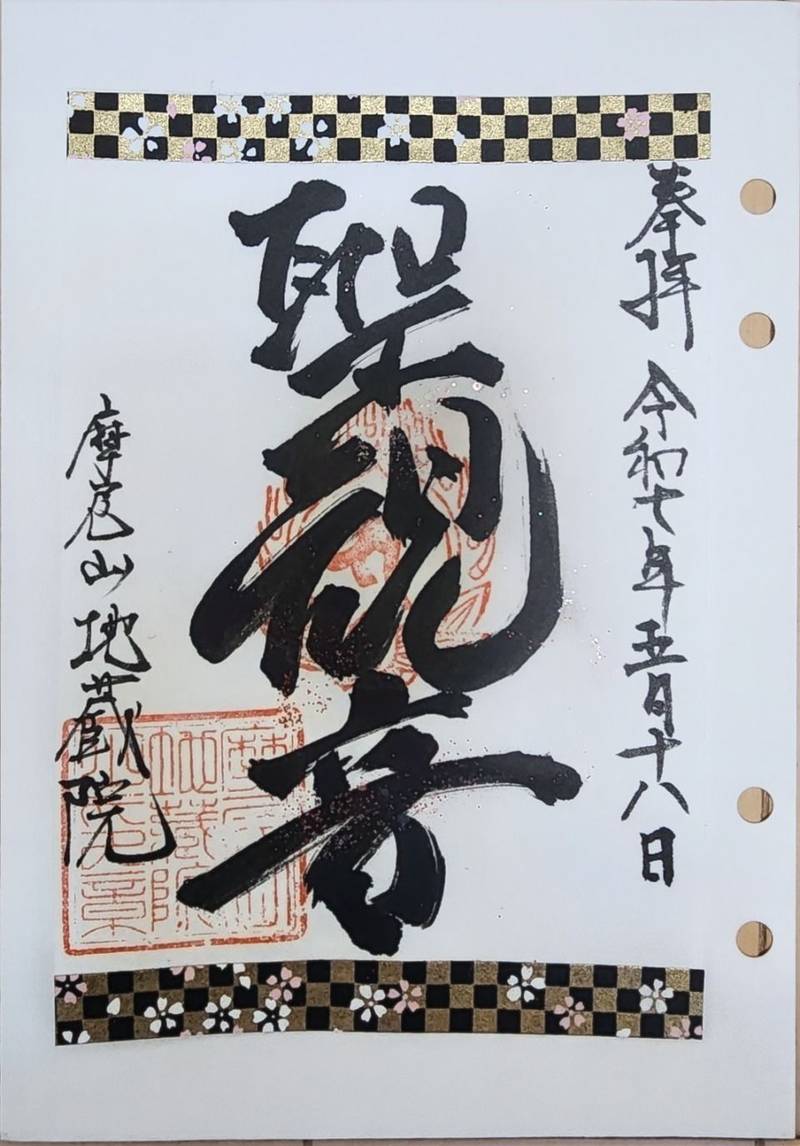 奉拝 令和七年五月十八日
聖観音
摩尼山地蔵院